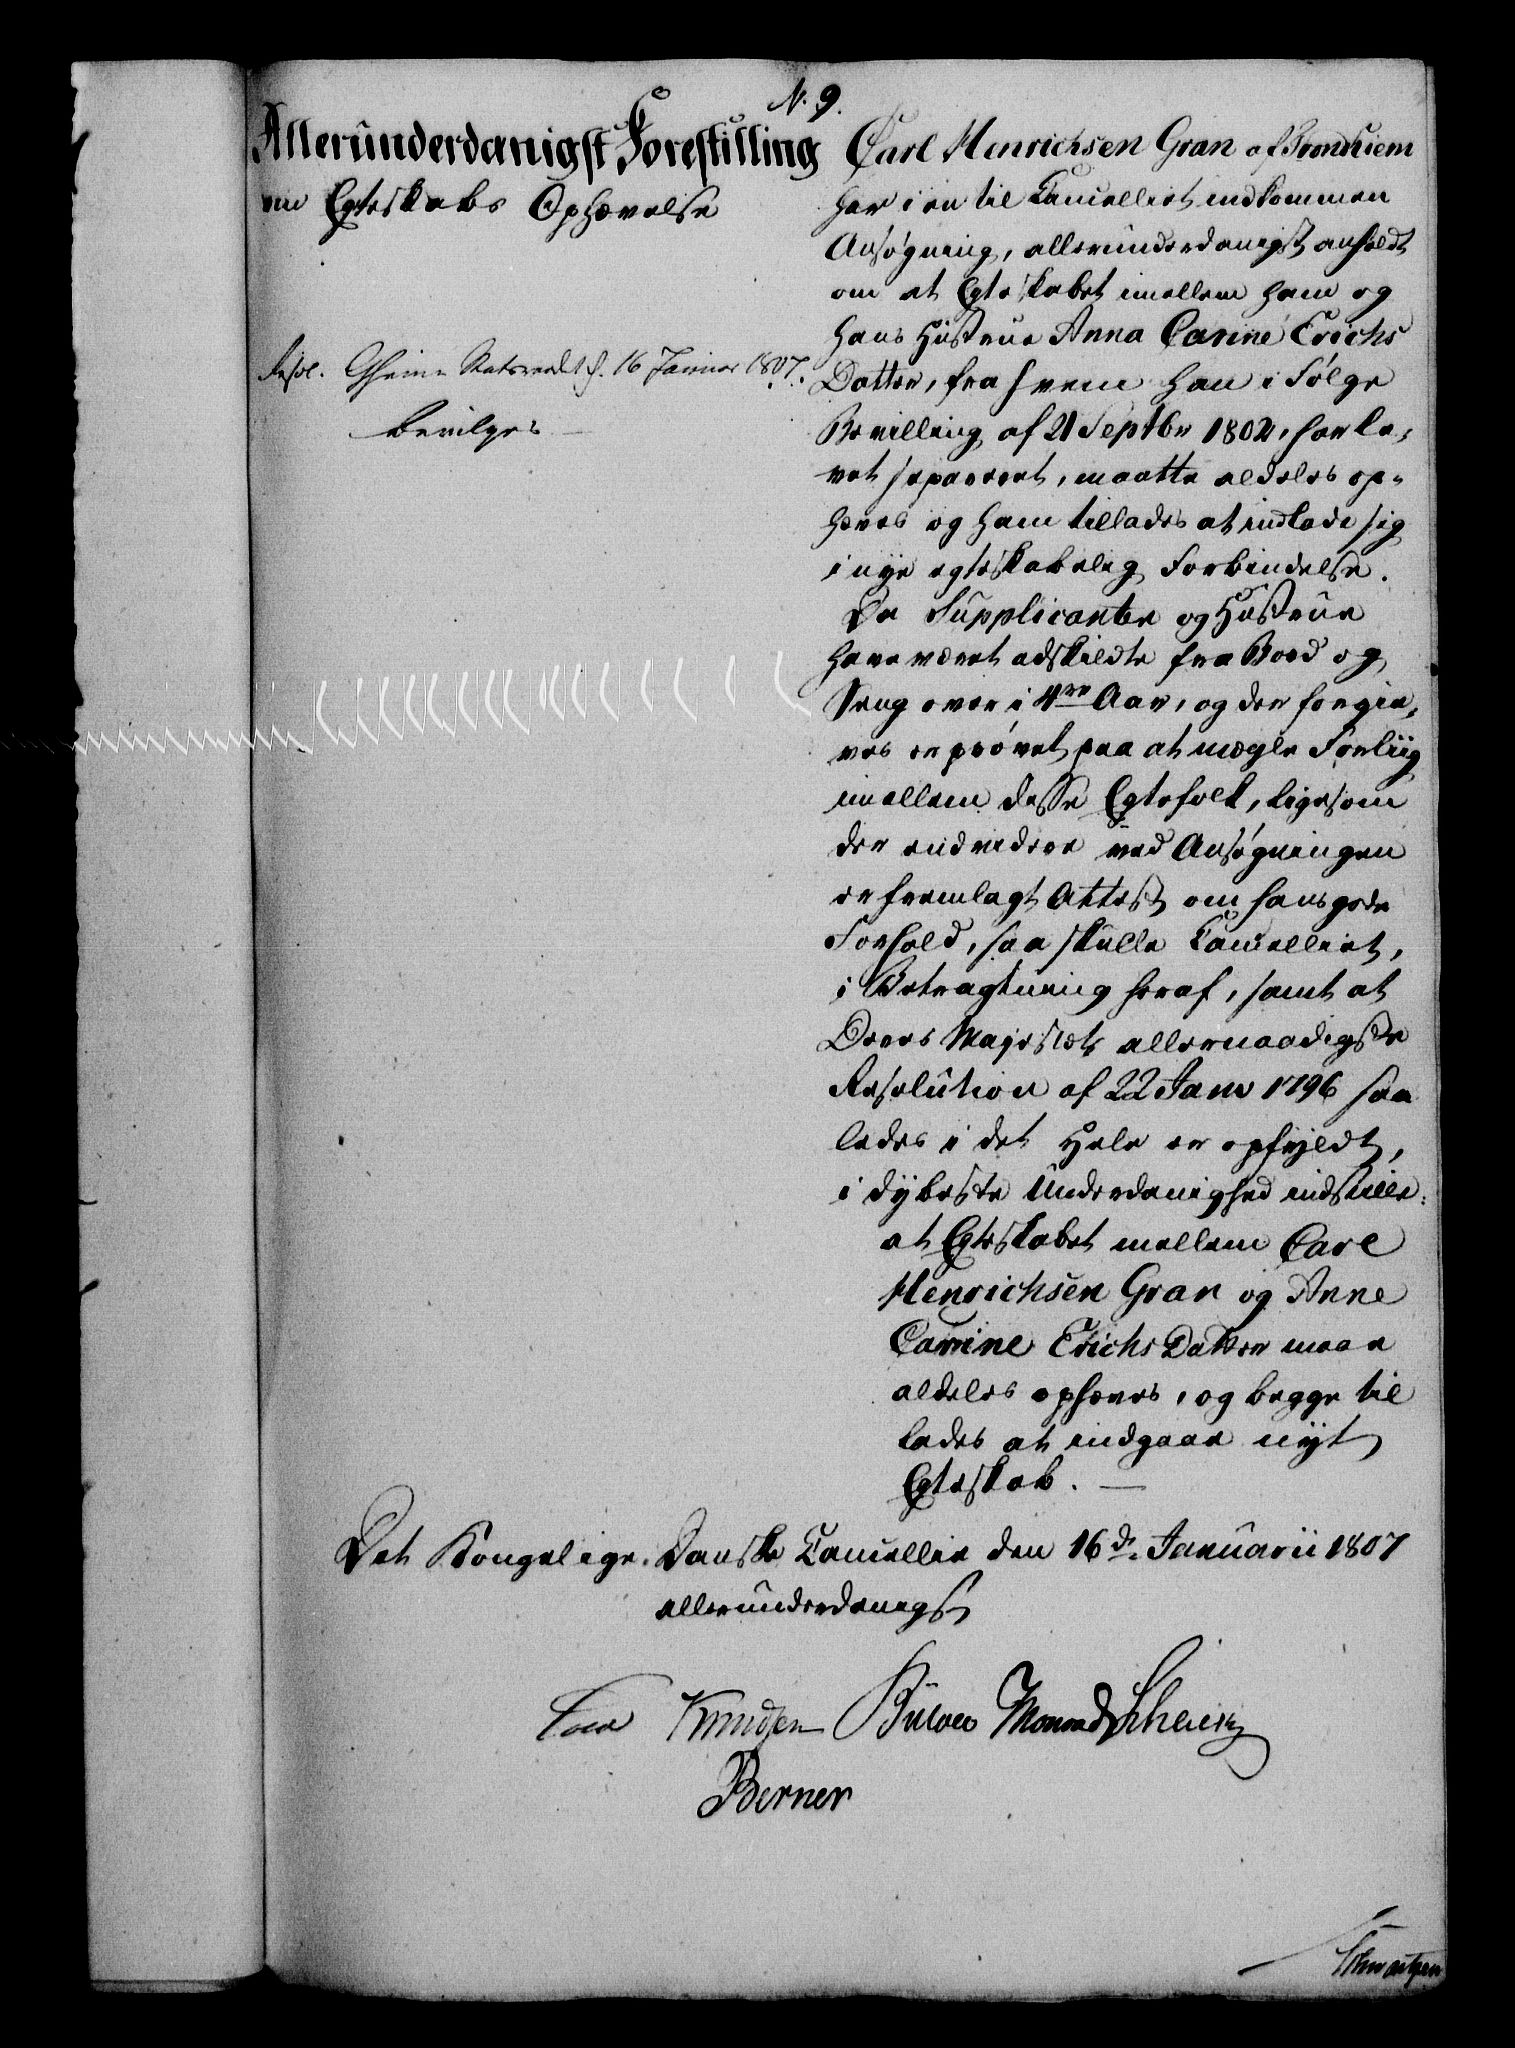 N. 9.
Allerunderdanigst Forestilling
om Egteskabs Ophævelse
Resol. Geheime Statsraadet d. 16 Januar 1807.
Bevilges
Carl Henrichsen Gran af Trondhiem
har i en til Cancelliet indkommen
Ansøgning, allerunderdanigst anholdt
om at Egteskabet imellem ham og
hans Hustrue Anna Carine Erichs
Datter, fra hvem han i Følge
Bevilling af 21 Septbr 1802, har le-
vet separeret, maatte aldeles op-
hæves og ham tillades at indlade sig
i nye egteskabelig Forbindelse.
Da Supplicanten og Hustrue
have været adskildte fra Bord og
Seng over i 4re Aar, og der forgie-
ves er prøvet paa at mægle Forliig
imellem disse Egtefolk, ligesom
der endvidere ved Ansøgningen
er fremlagt Attest om hans gode
Forhold, saa skulle Cancelliet,
i Betragtning heraf, samt at
Deres Majestæts allernaadigste
Resolution af 22 Janv 1796 saa
ledes i det Hele er opfyldt,
i dybeste Underdanighed indstille:
at Egteskabet mellem Carl
Henrichsen Gran og Anne
Carine Erichs Datter maae
aldeles ophæves, og begge til
lades at indgaae nyt
Egteskab. —
Det Kongelige Danske Cancellie den 16de Januarii 1807
allerunderdanigst
Knudsen Bülow Monrad
Berner